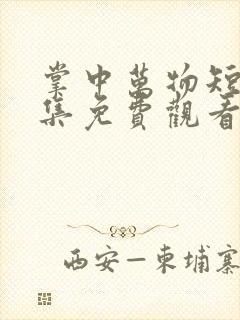 掌中萬物短
集免費觀看
西安—柬埔寨